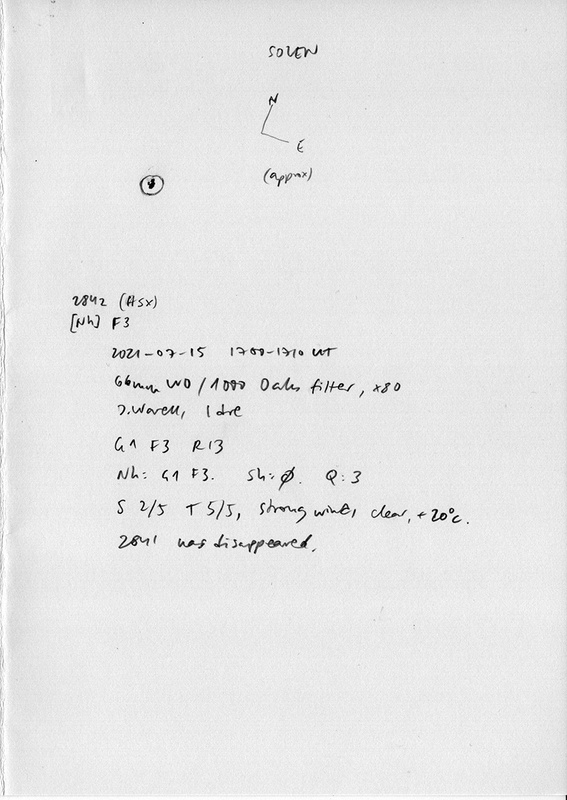 SOLEN
N
E
(approx)
2842 (HSX)
[Nh] F3
2021-07-15 1700-1710 UT
66mm WO / 1000 Oaks filter, x80
J.Warell, Idre
G1 F3 R13
Nh: G1 F3. Sh: Ø. Q: 3
S 2/5 T 5/5, strong wind, clear, +20°C.
2841 has disappeared.